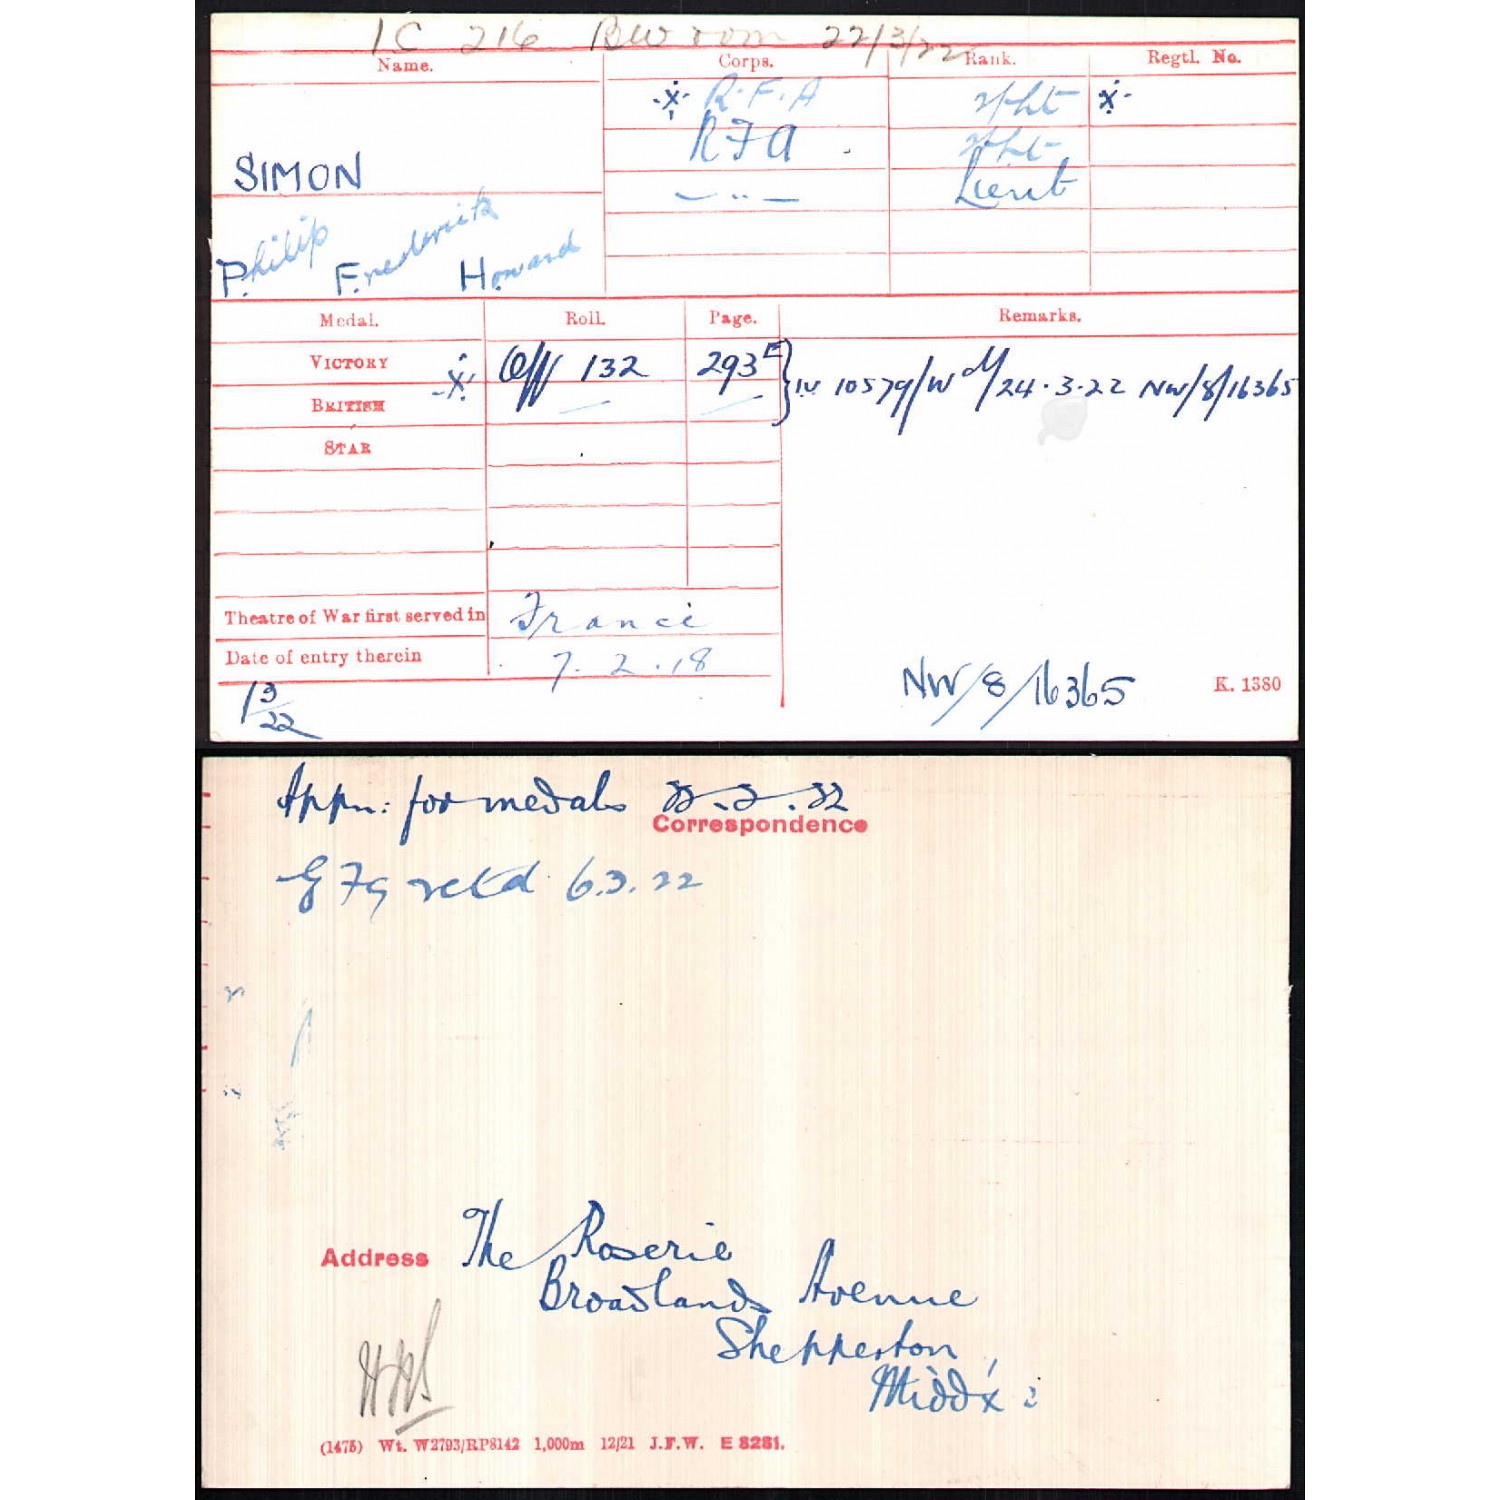 IC 216 BW room 22/3/22
Name. Corps. Rank. Regtl. No.
R.F.A 2/Lt
RFA 2/Lt
SIMON — ·· — Lieut
Philip Frederick Howard
Medal. Roll. Page. Remarks.
VICTORY Off 132 293E IV 10579/Wd/24.3.22 NW/8/16365
BRITISH
STAR
Theatre of War first served in France
Date of entry therein 7.2.18
13/22 NW/8/16365 K. 1380
Appn: for medals
Correspondence
retd 6.3.22
Address The Roserie
Broadlands Avenue
Shepperton,
Middx:
(1475) Wt. W2793/RP8142 1,000m 12/21 J.F.W. E 8281.